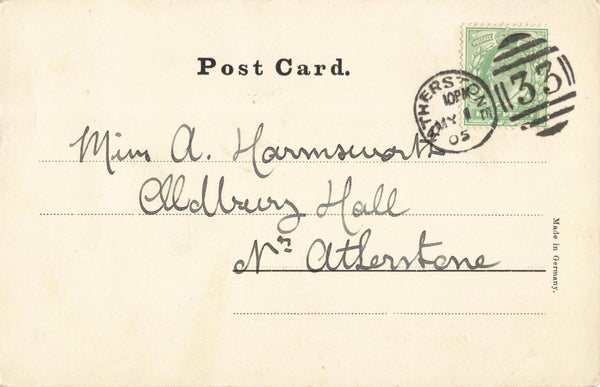 Post Card.
ATHERSTONE
10PM
MY 1
05
33
Miss A. Harmsworth
Oldbury Hall
Nr Atherstone
Made in Germany.